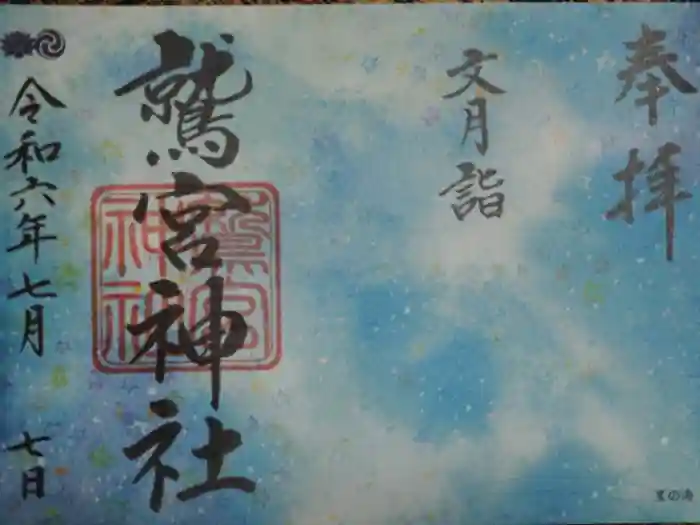 奉拝
文月詣
鷲宮神社
鷲宮
神社
令和六年七月七日
星の海